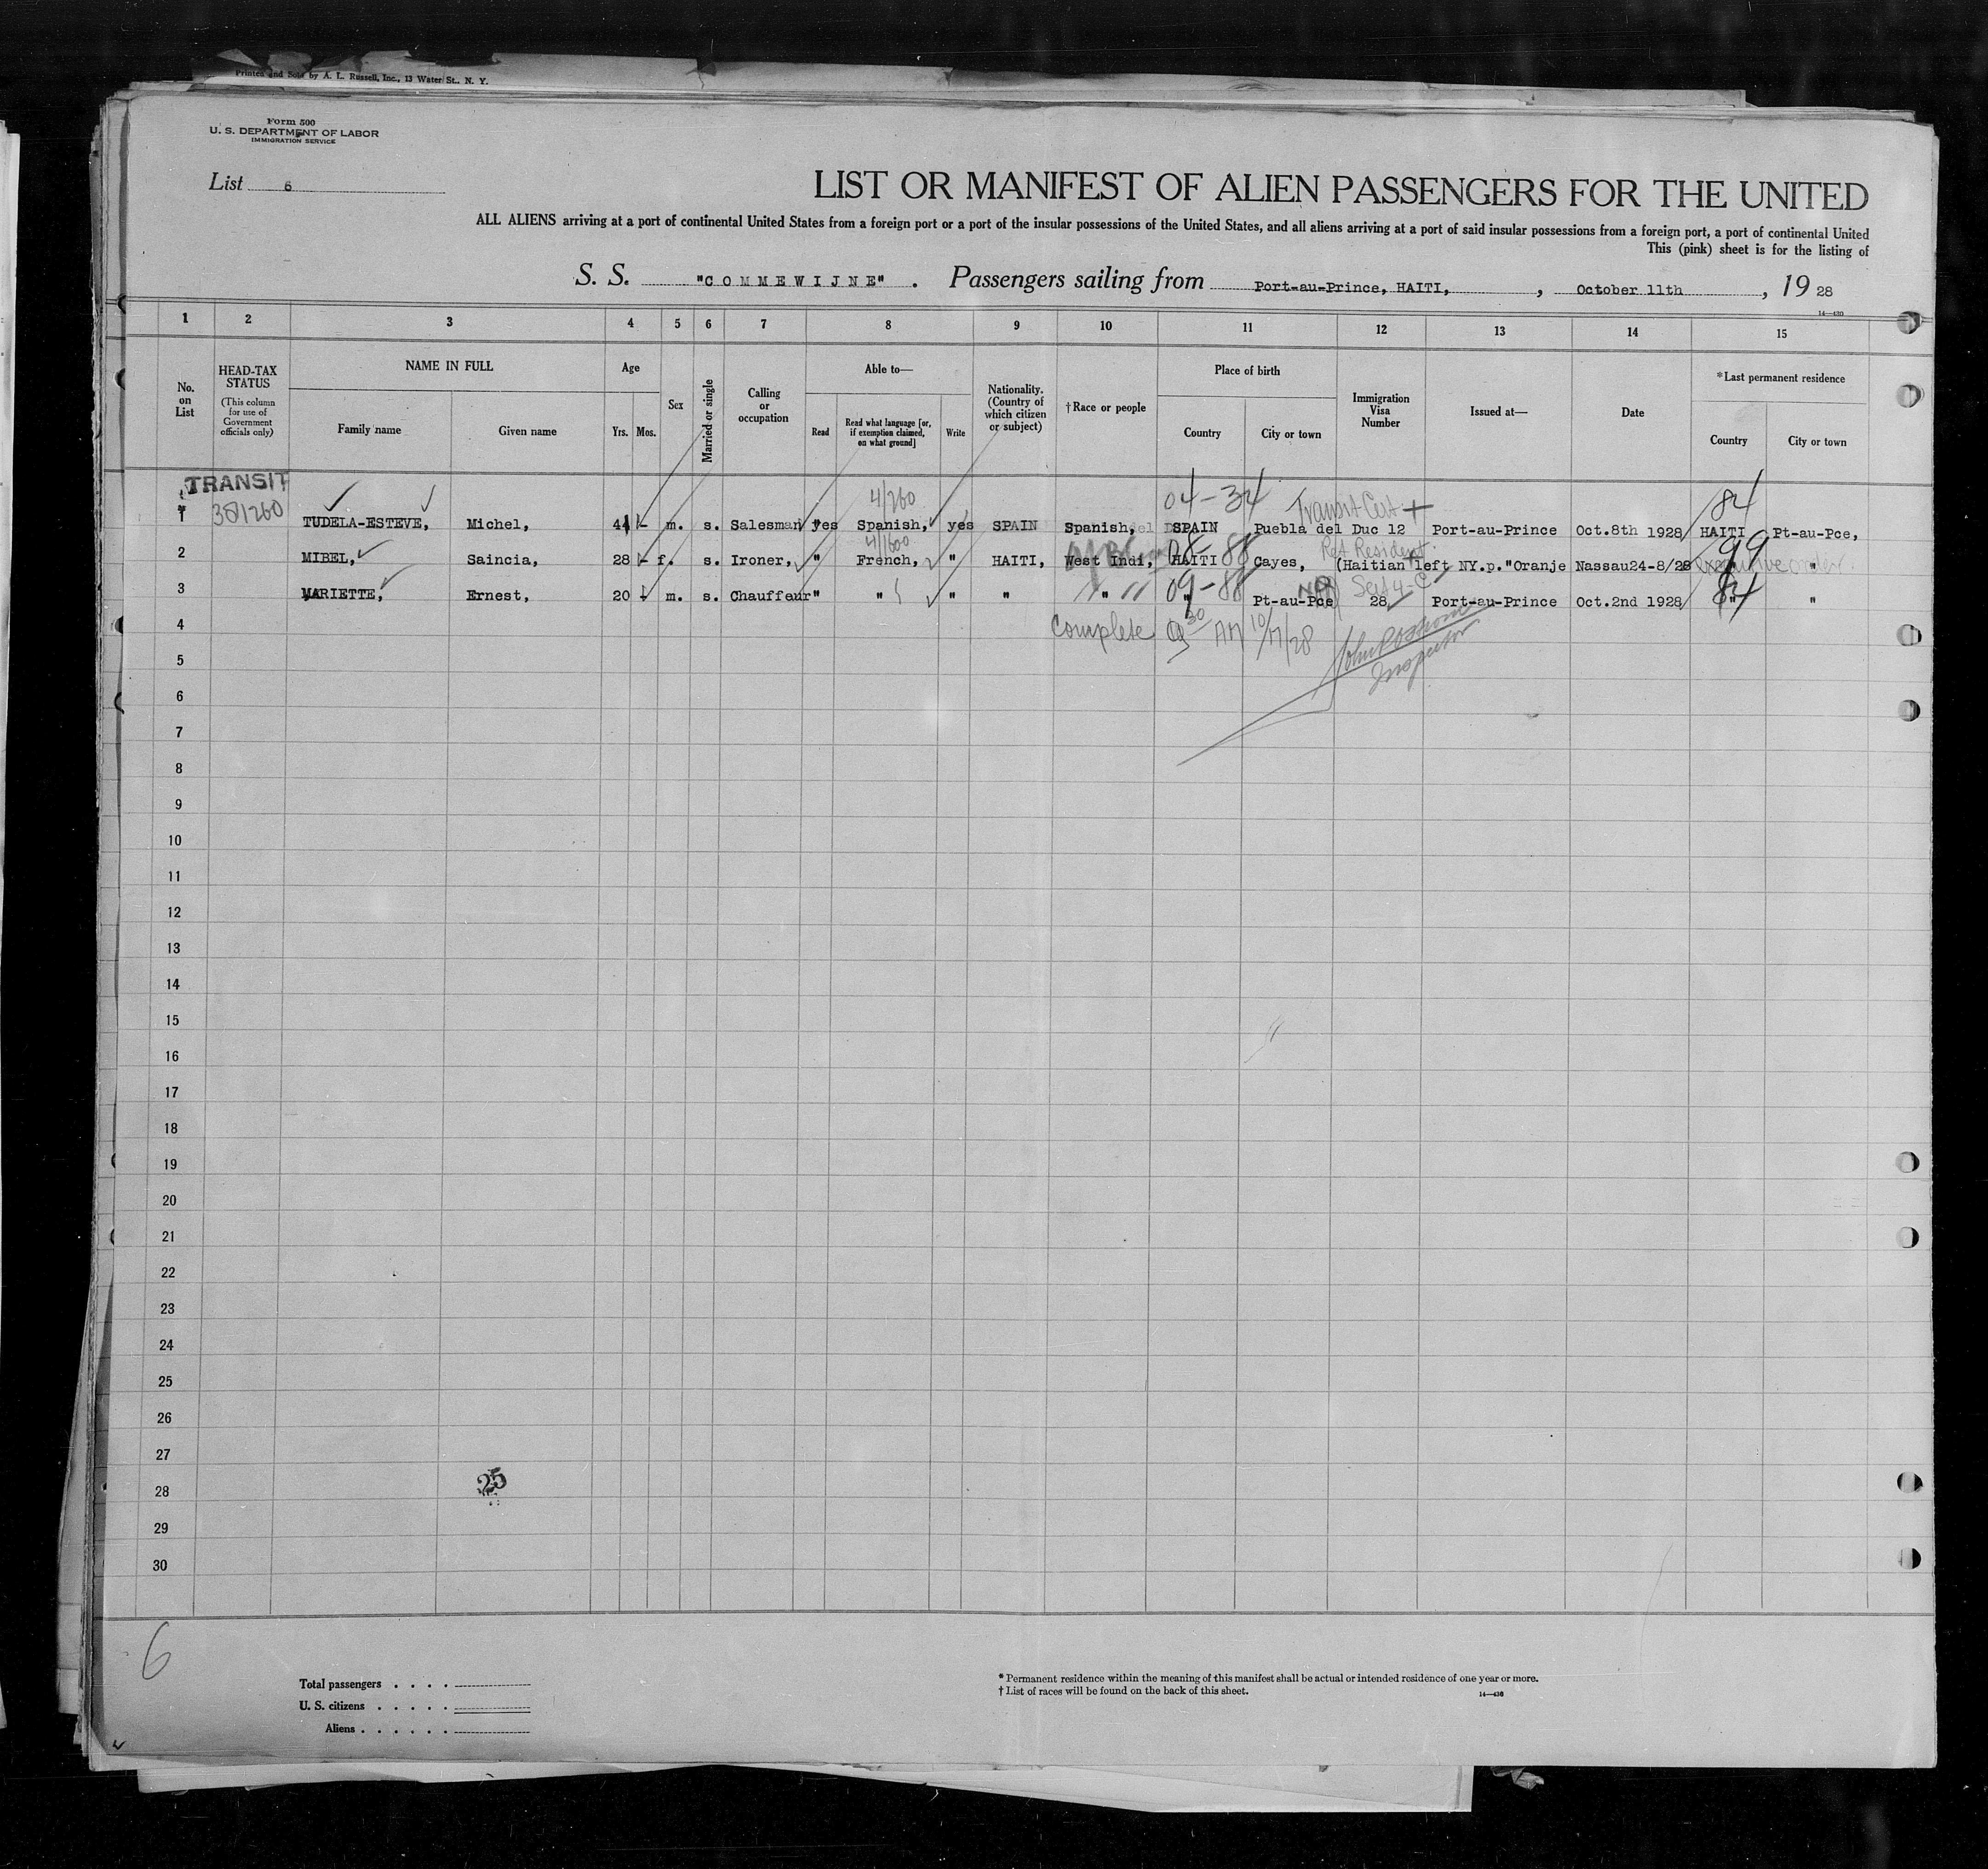 Printed and Sold by A. L. Russell, Inc., 13 Water St., N. Y.
Form 500
U. S. DEPARTMENT OF LABOR
IMMIGRATION SERVICE
List 6
LIST OR MANIFEST OF ALIEN PASSENGERS FOR THE UNITED
ALL ALIENS arriving at a port of continental United States from a foreign port or a port of the insular possessions of the United States, and all aliens arriving at a port of said insular possessions from a foreign port, a port of continental United
This (pink) sheet is for the listing of
S. S. "COMMEWIJNE" . Passengers sailing from Port-au-Prince, HAITI, , October 11th , 19 28
14—430
1 2 3 4 5 6 7 8 9 10 11 12 13 14 15
No. on List
HEAD-TAX STATUS
(This column for use of Government officials only)
NAME IN FULL
Family name
Given name
Age
Yrs. Mos.
Sex
Married or single
Calling or occupation
Able to—
Read
Read what language [or, if exemption claimed, on what ground]
Write
Nationality. (Country of which citizen or subject)
†Race or people
Place of birth
Country
City or town
Immigration Visa Number
Issued at—
Date
*Last permanent residence
Country
City or town
TRANSIT
4/260 04-34 Transit Cert + 84
1 381260 TUDELA-ESTEVE, Michel, 44 - m. s. Salesman yes Spanish, yes SPAIN Spanish, SPAIN Puebla del Duc 12 Port-au-Prince Oct.8th 1928 HAITI Pt-au-Pce,
4/1600 08-88 Ret Resident 99
2 MIBEL, Saincia, 28 - f. s. Ironer, " French, " HAITI, West Indi, HAITI Cayes, (Haitian left NY.p."Oranje Nassau24-8/28 executive order "
09-88 Sec 4-C 84
3 MARIETTE, Ernest, 20 - m. s. Chauffeur " " " " " " Pt-au-Pce 28 Port-au-Prince Oct.2nd 1928 " "
4 Complete 9 30 AM 10/17/28
Inspector
5
6
7
8
9
10
11
12
13
14
15
16
17
18
19
20
21
22
23
24
25
26
27
28 25
29
30
6
Total passengers . . . .
U. S. citizens . . . . .
Aliens . . . . . .
* Permanent residence within the meaning of this manifest shall be actual or intended residence of one year or more.
† List of races will be found on the back of this sheet.
14—430